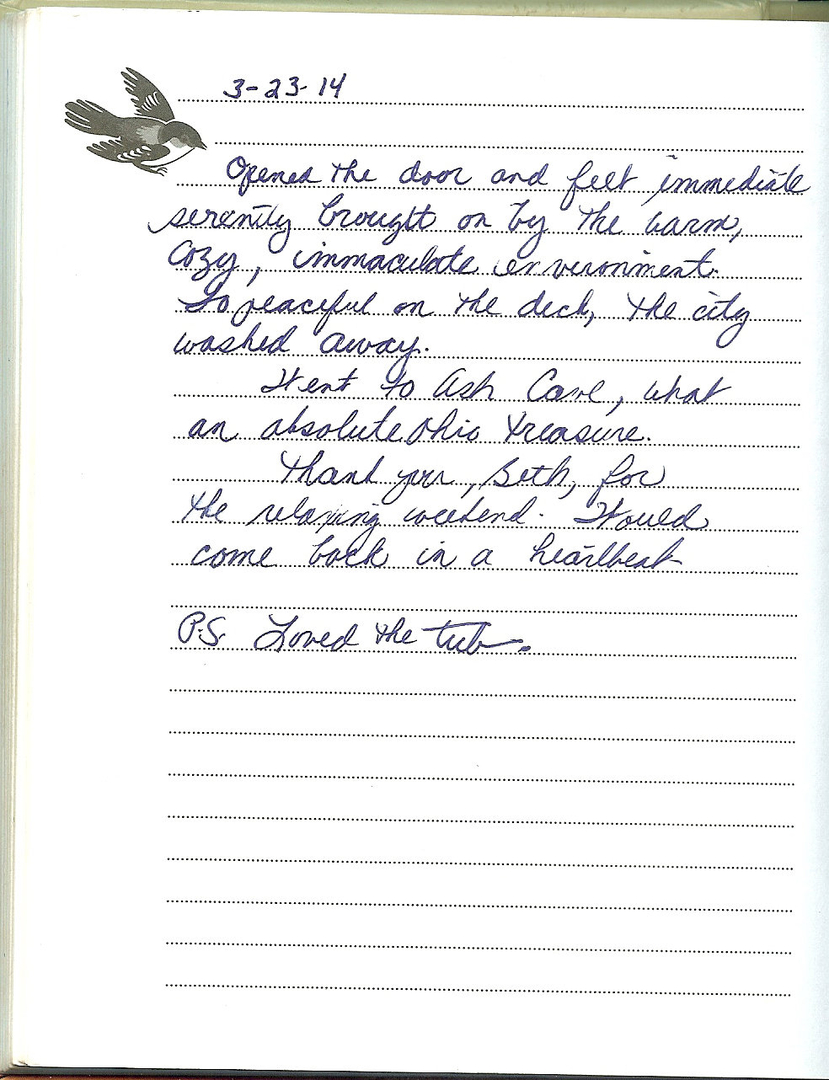 3-23-14
Opened the door and felt immediate
serenity brought on by the warm,
cozy, immaculate environment.
So peaceful on the deck, the city
washed away.
Went to Ash Cave, what
an absolute Ohio treasure.
Thank you, Seth, for
the relaxing weekend. Would
come back in a heartbeat
P.S. Loved the tub.